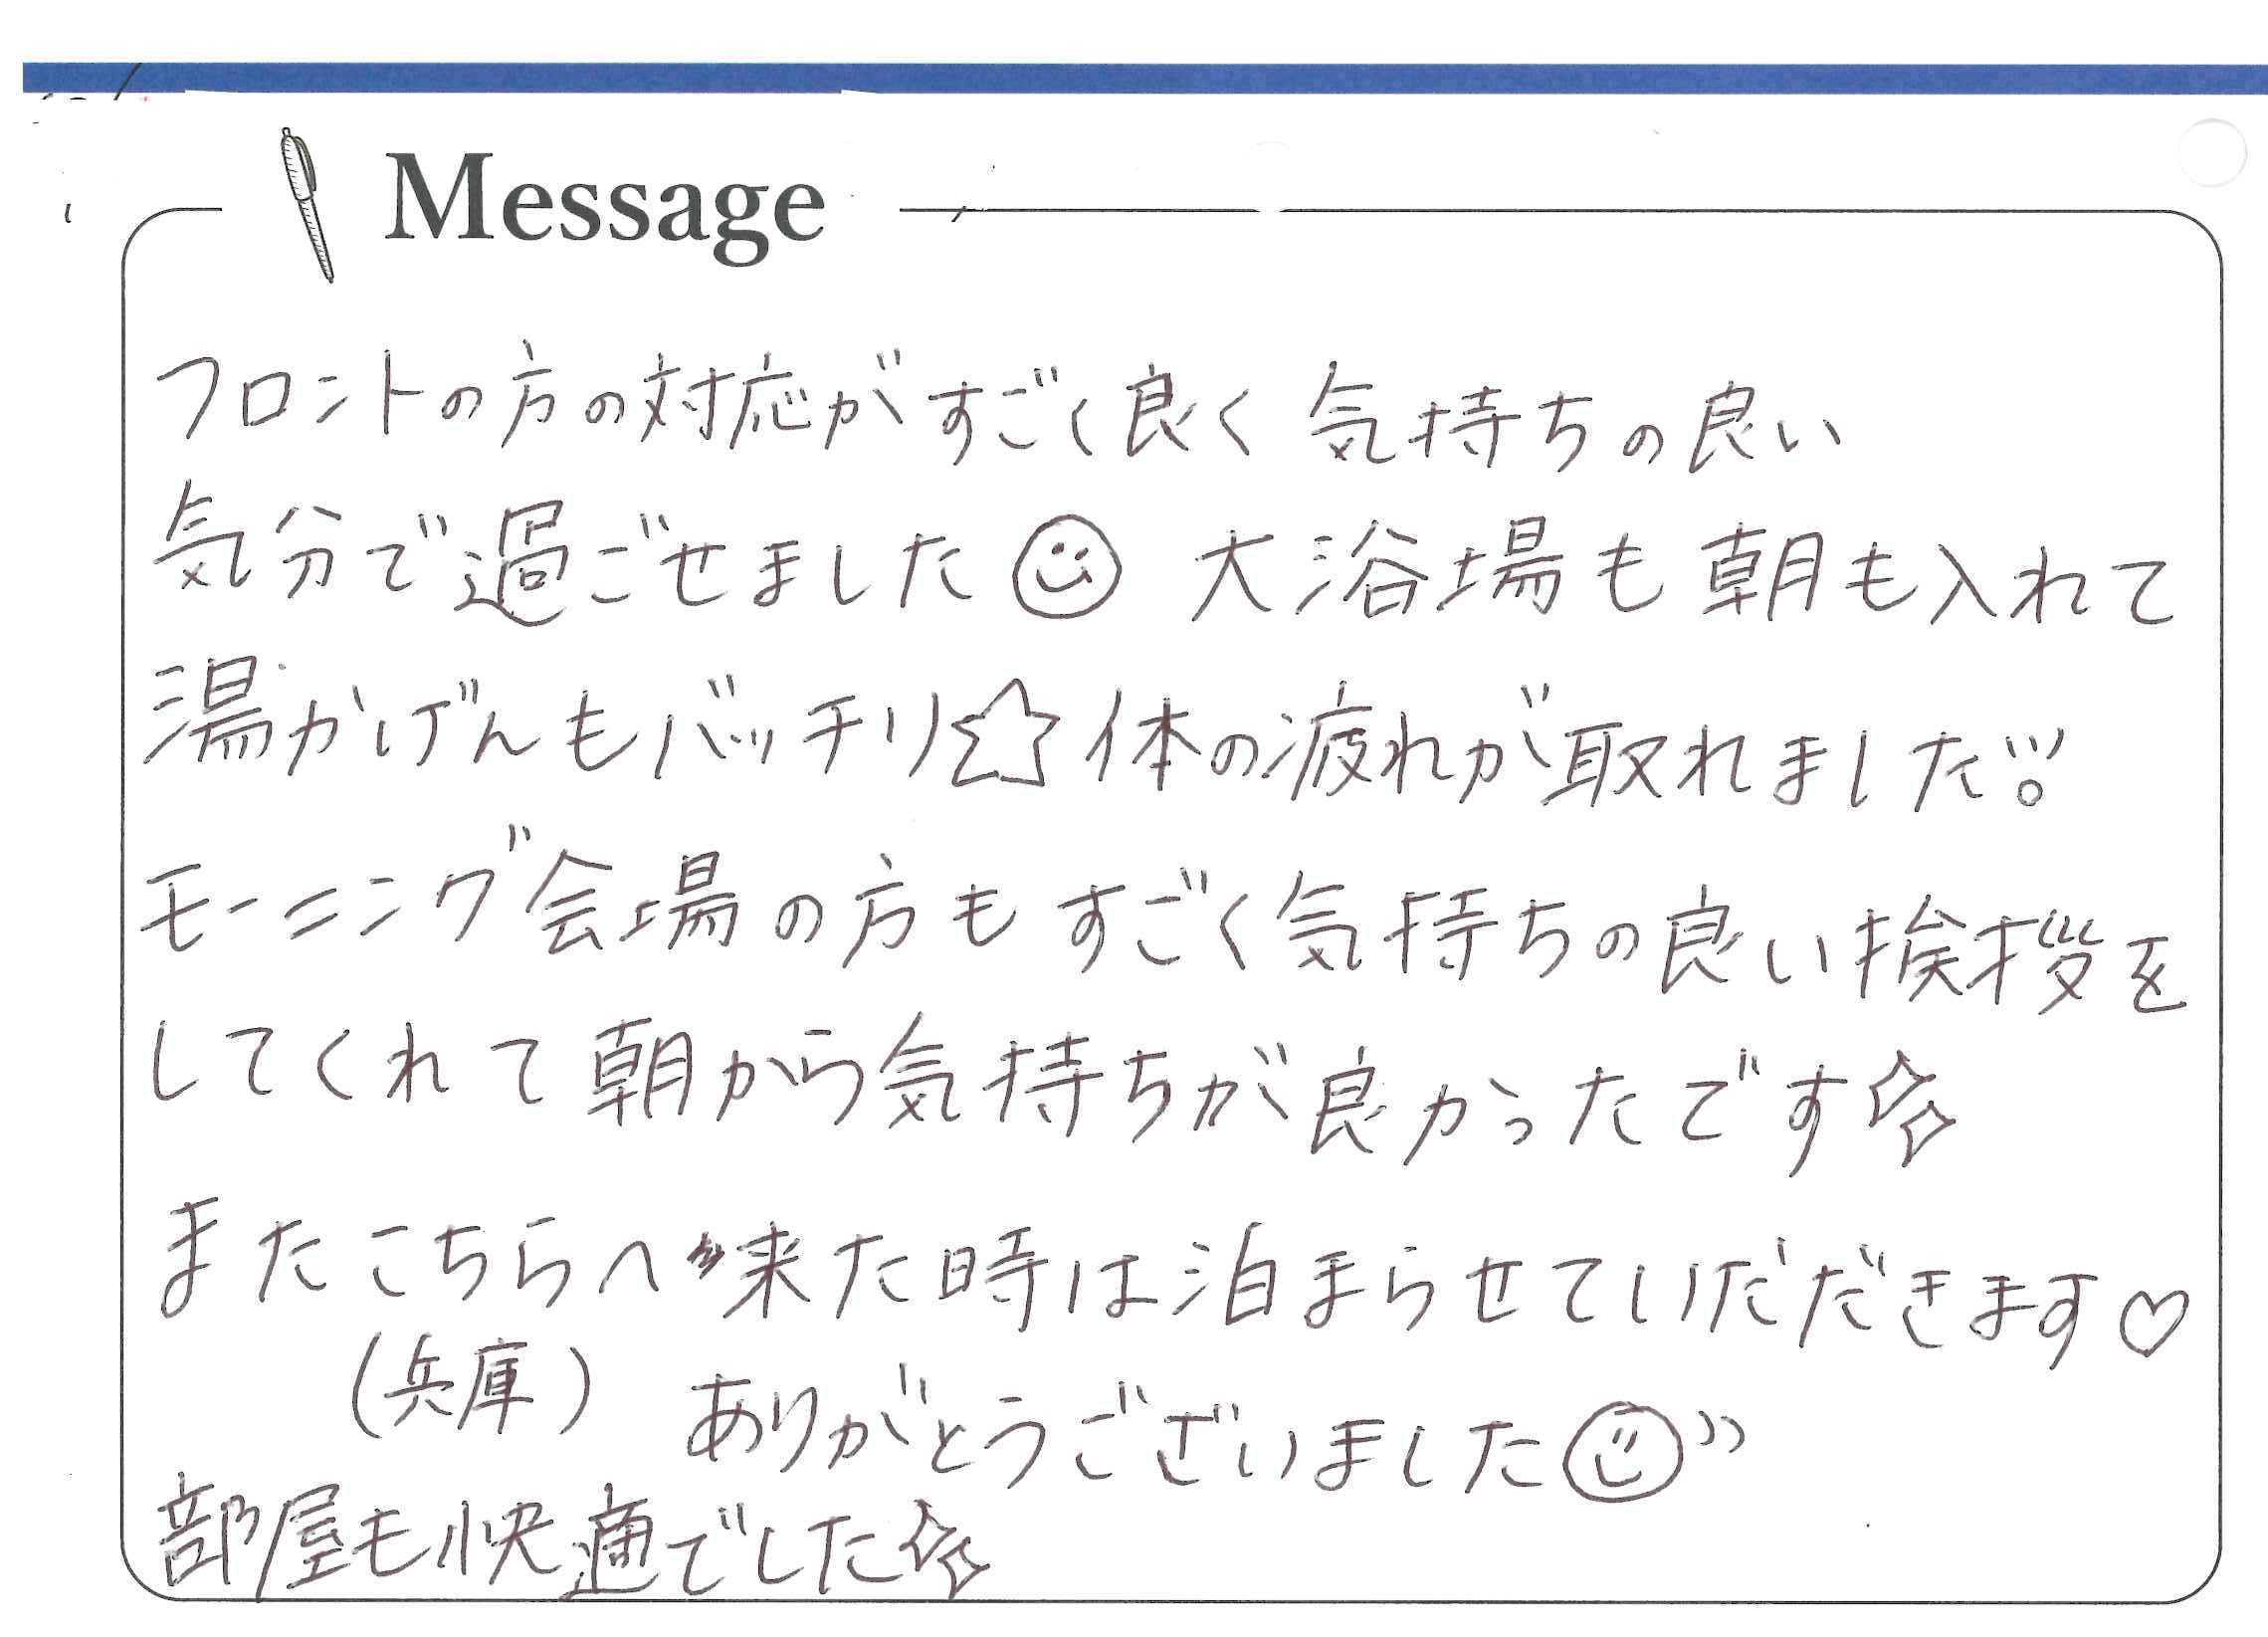 Message
フロントの方の対応がすごく良く気持ちの良い
気分で過ごせました☺ 大浴場も朝も入れて
湯かげんもバッチリ☆体の疲れが取れました!!
モーニング会場の方もすごく気持ちの良い挨拶を
してくれて朝から気持ちが良かったです✨
またこちらへ来た時は泊まらせていだだきます♡
(兵庫) ありがとうございました☺”
部屋も快適でした✨